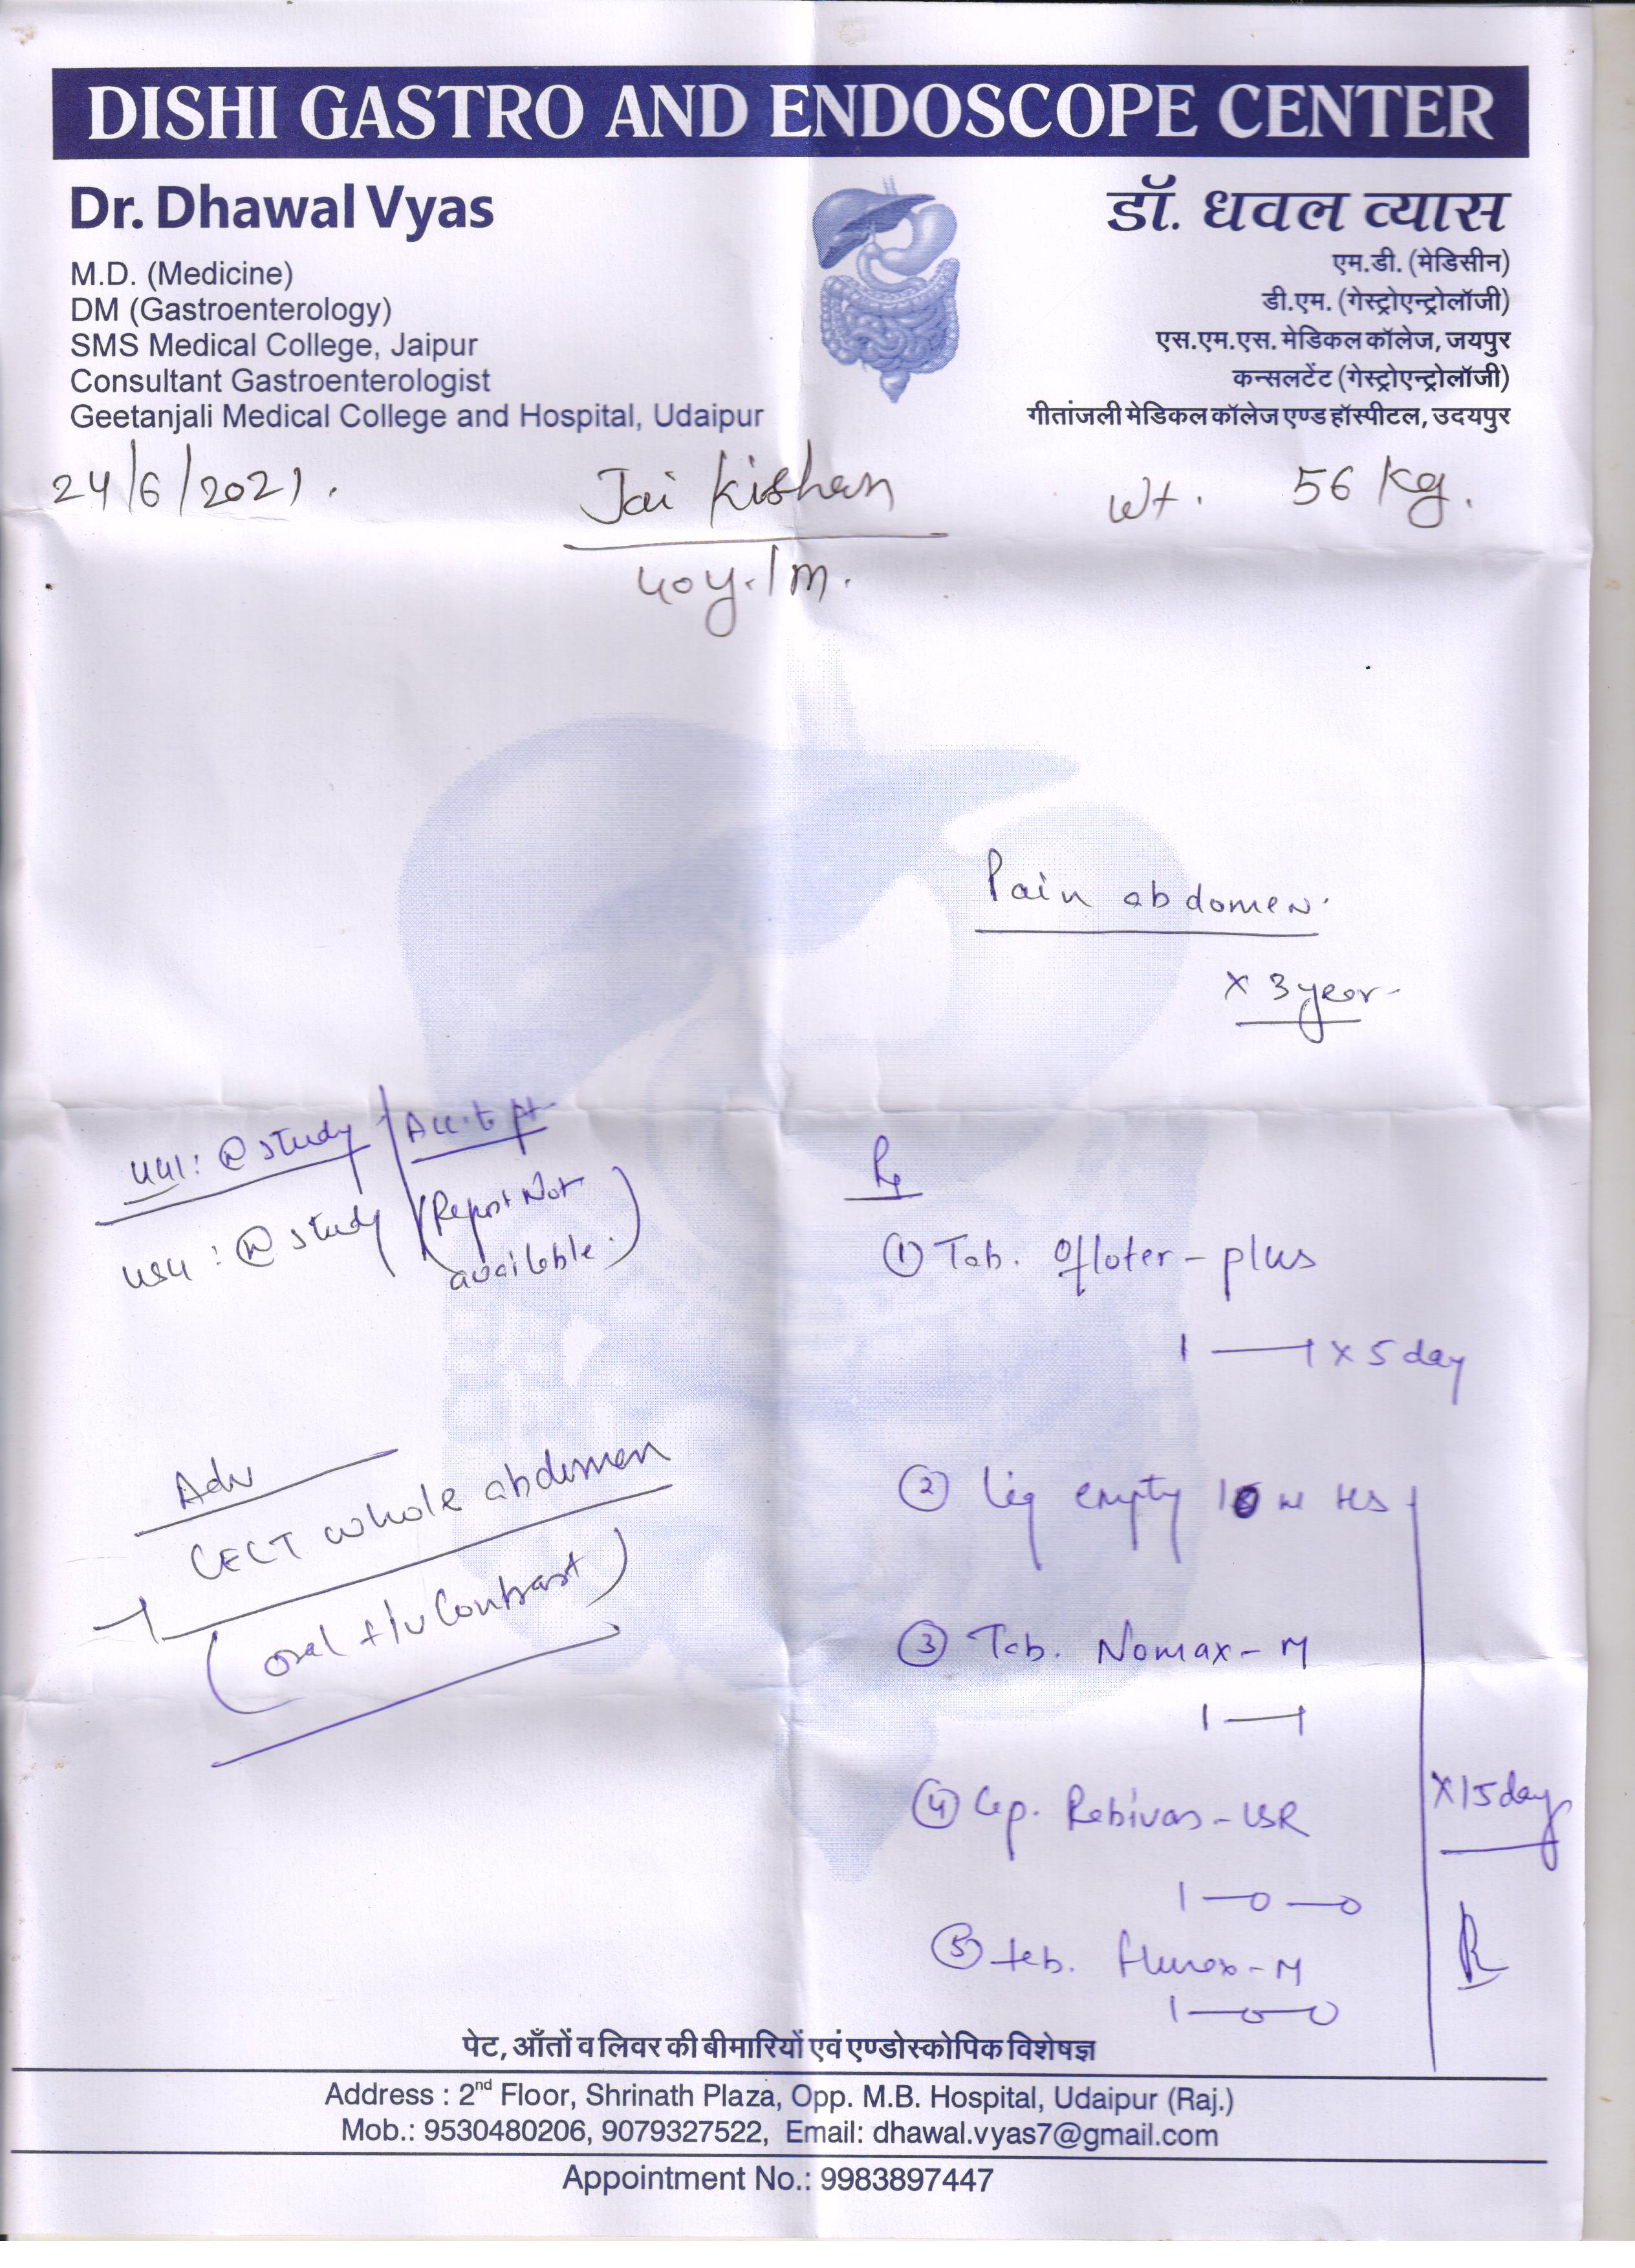 DISHI GASTRO AND ENDOSCOPE CENTER
Dr. Dhawal Vyas
M.D. (Medicine)
DM (Gastroenterology)
SMS Medical College, Jaipur
Consultant Gastroenterologist
Geetanjali Medical College and Hospital, Udaipur
डॉ. धवल व्यास
एम.डी. (मेडिसीन)
डी.एम. (गेस्ट्रोएन्ट्रोलॉजी)
एस.एम.एस. मेडिकल कॉलेज, जयपुर
कन्सलटेंट (गेस्ट्रोएन्ट्रोलॉजी)
गीतांजली मेडिकल कॉलेज एण्ड हॉस्पीटल, उदयपुर
24/6/2021. Jai Kishan Wt. 56 Kg.
40y./m.
Pain abdomen.
x 3 year
study Acc. to pt
study (Report Not
available.)
Adv
CECT whole abdomen
(oral + Iv Contrast)
Rx
① Tab. Ofloter-plus
1—1 x 5 day
② empty 10 ml HS
③ Tab. Nomax-M
1—1
④ Cap. Rebivas-LSR
1—0—0
⑤ tab. M
1—0—0
x 15 day
R
पेट, आँतों व लिवर की बीमारियों एवं एण्डोस्कोपिक विशेषज्ञ
Address : 2nd Floor, Shrinath Plaza, Opp. M.B. Hospital, Udaipur (Raj.)
Mob.: 9530480206, 9079327522, Email: dhawal.vyas7@gmail.com
Appointment No.: 9983897447